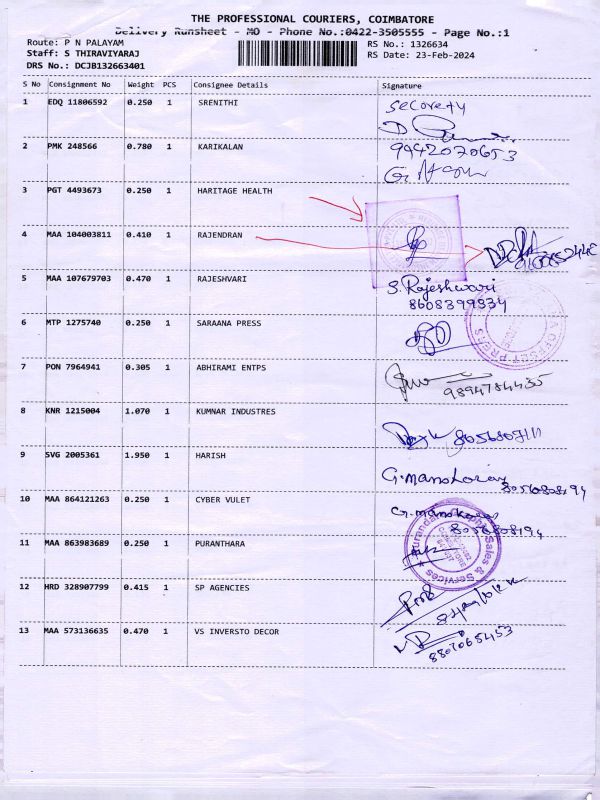 THE PROFESSIONAL COURIERS, COIMBATORE
Delivery Runsheet - MO - Phone No.:0422-3505555 - Page No.:1
Route: P N PALAYAM
RS No.: 1326634
Staff: S THIRAVIYARAJ
RS Date: 23-Feb-2024
DRS No.: DCJB132663401
S No Consignment No Weight PCS Consignee Details Signature
1 EDQ 11806592 0.250 1 SRENITHI
2 PMK 248566 0.780 1 KARIKALAN
9942070653
3 PGT 4493673 0.250 1 HARITAGE HEALTH
4 MAA 104003811 0.410 1 RAJENDRAN
5 MAA 107679703 0.470 1 RAJESHVARI S. Rajeshwari
8608399934
6 MTP 1275740 0.250 1 SARAANA PRESS
OFFSET PRESS
7 PON 7964941 0.305 1 ABHIRAMI ENTPS
9894784435
8 KNR 1215004 1.070 1 KUMNAR INDUSTRES
9 SVG 2005361 1.950 1 HARISH
8056808194
10 MAA 864121263 0.250 1 CYBER VULET
8056808194
11 MAA 863983689 0.250 1 PURANTHARA
Sales & Services
12 HRD 328907799 0.415 1 SP AGENCIES
13 MAA 573136635 0.470 1 VS INVERSTO DECOR